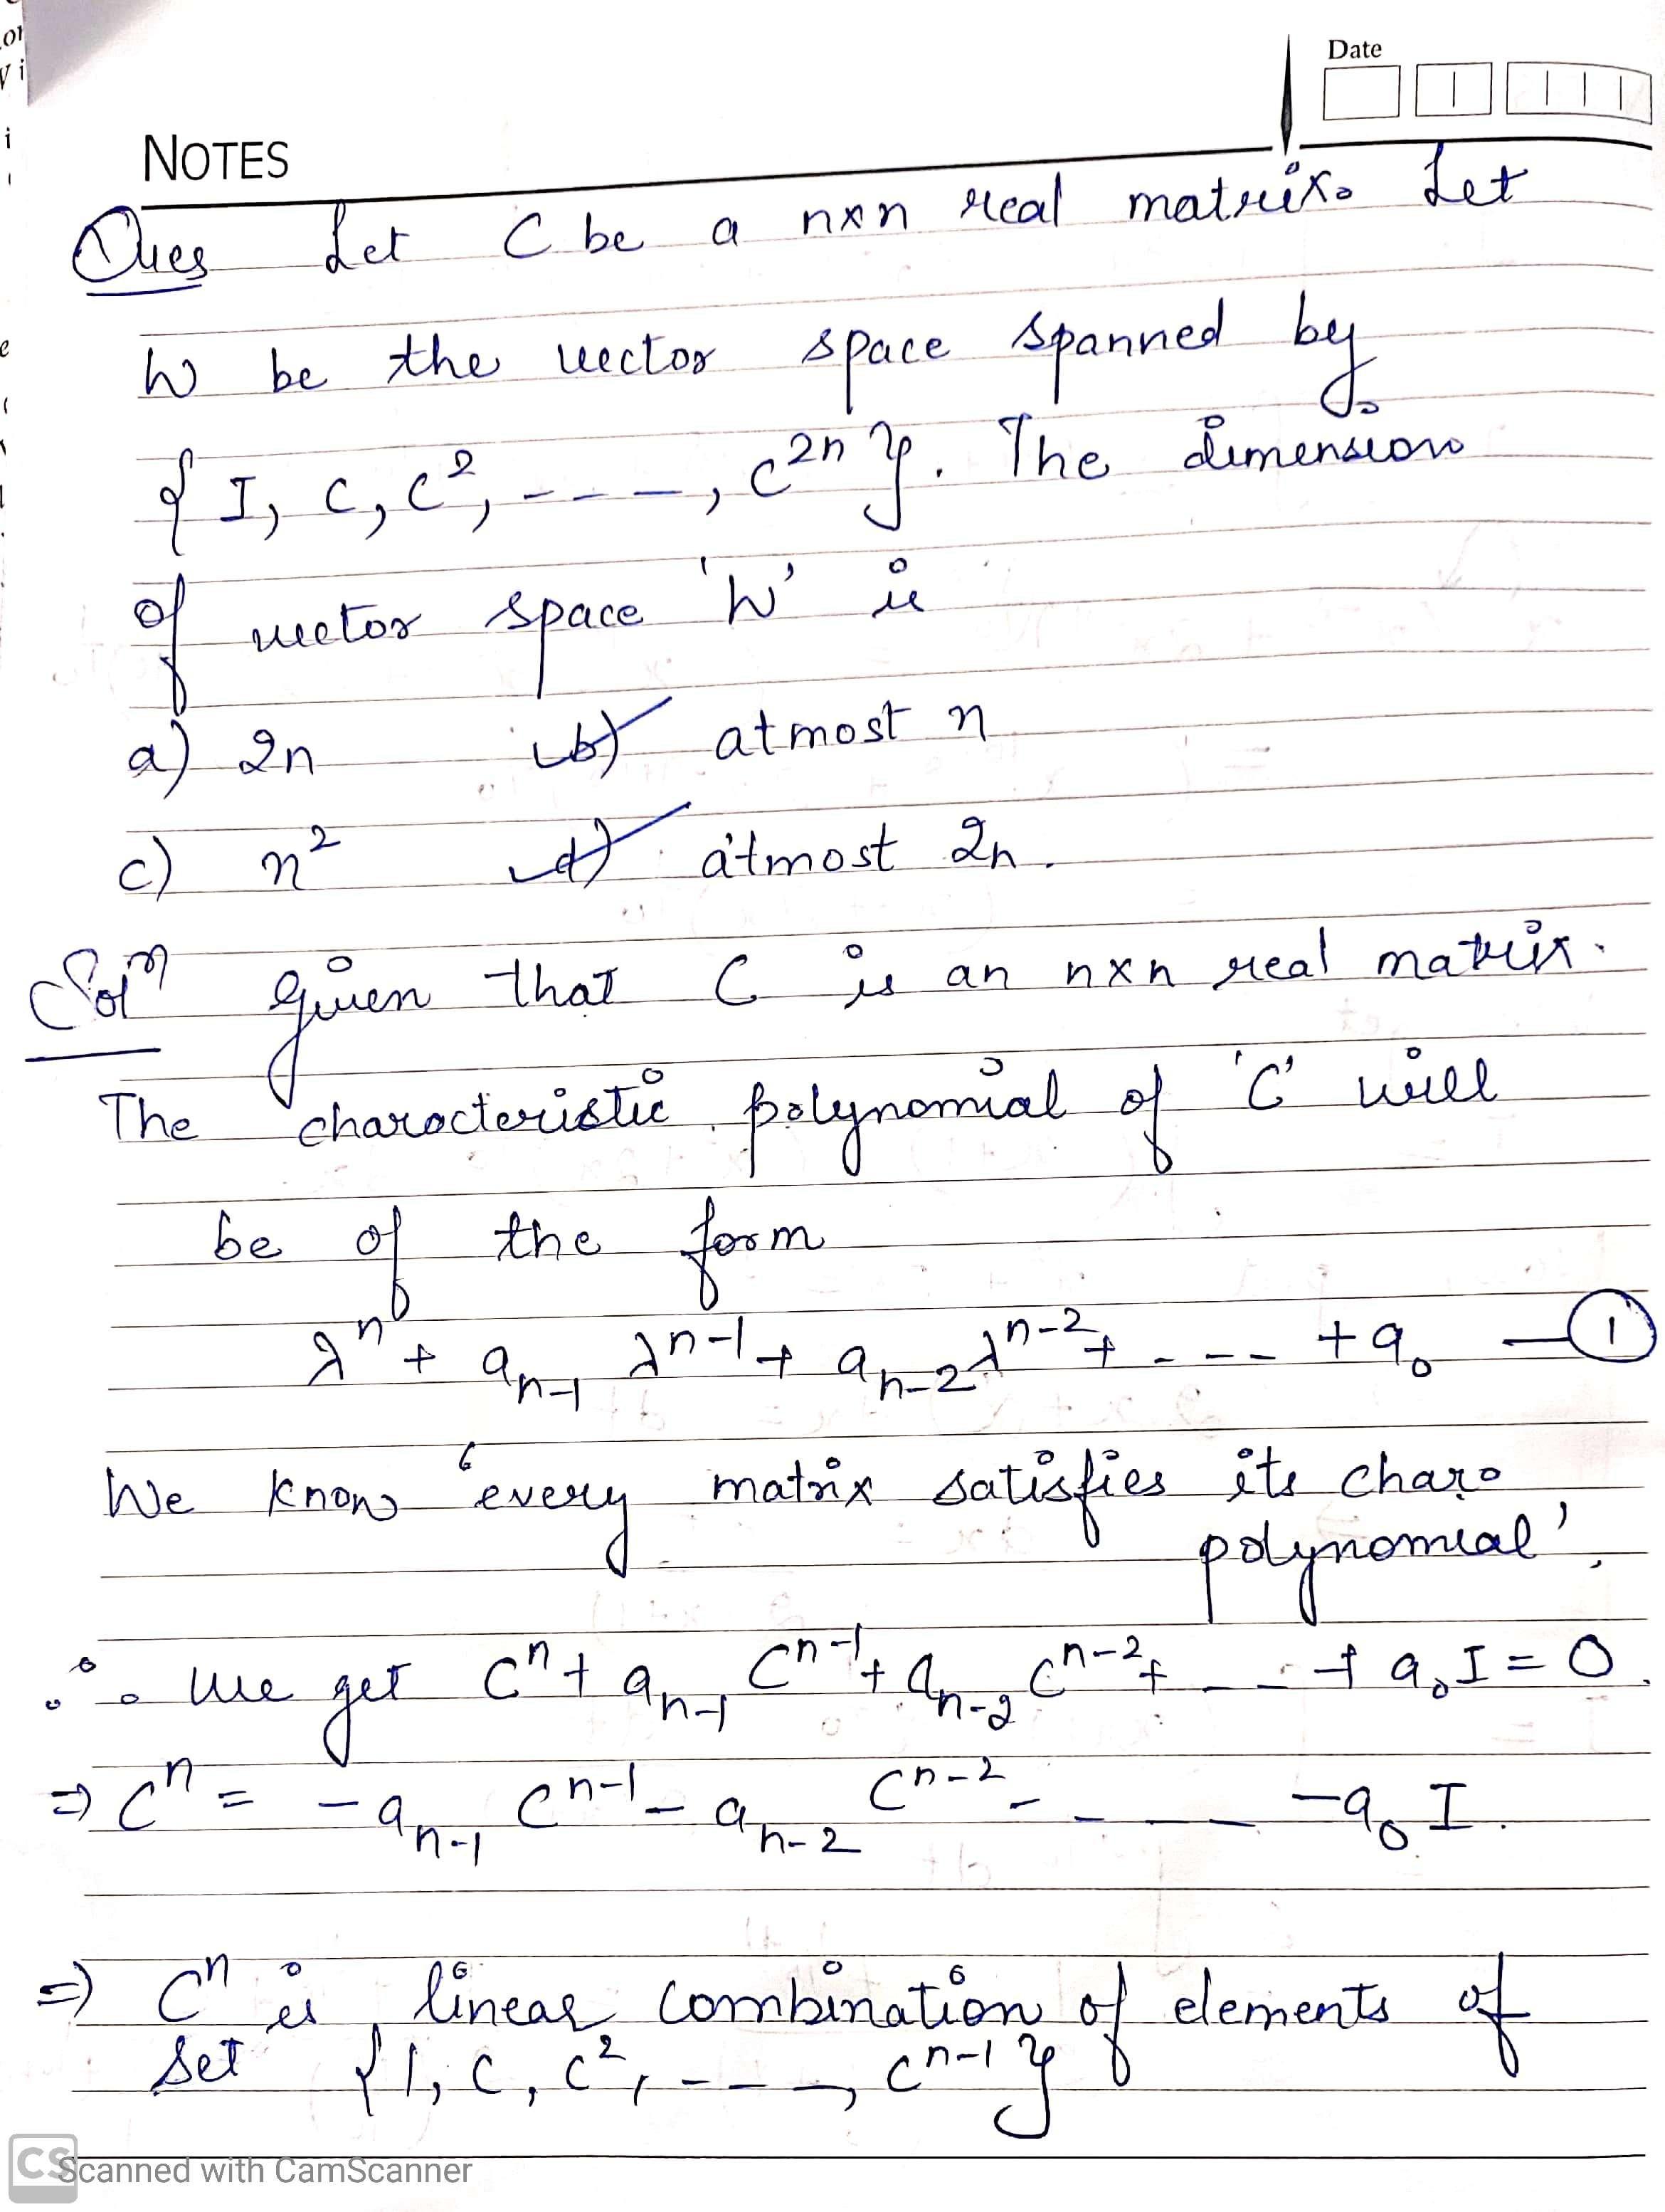 Date
NOTES
Ques Let C be a n×n real matrix. Let
W be the vector space spanned by
{ I, C, C², ----, C²ⁿ }. The dimension
of vector space 'W' is
a) 2n b) atmost n
c) n² d) atmost 2n.
Solⁿ Given that C is an n×n real matrix.
The characteristic polynomial of 'C' will
be of the form
λⁿ + aₙ₋₁ λⁿ⁻¹ + aₙ₋₂ λⁿ⁻² + ---- + a₀ — ①
We know 'every matrix satisfies its char.
polynomial'.
∴ We get Cⁿ + aₙ₋₁ Cⁿ⁻¹ + aₙ₋₂ Cⁿ⁻² + --- + a₀ I = 0.
⇒ Cⁿ = - aₙ₋₁ Cⁿ⁻¹ - aₙ₋₂ Cⁿ⁻² - ---- - a₀ I.
⇒ Cⁿ is linear combination of elements of
set { 1, C, C², ----, Cⁿ⁻¹ }
CS Scanned with CamScanner